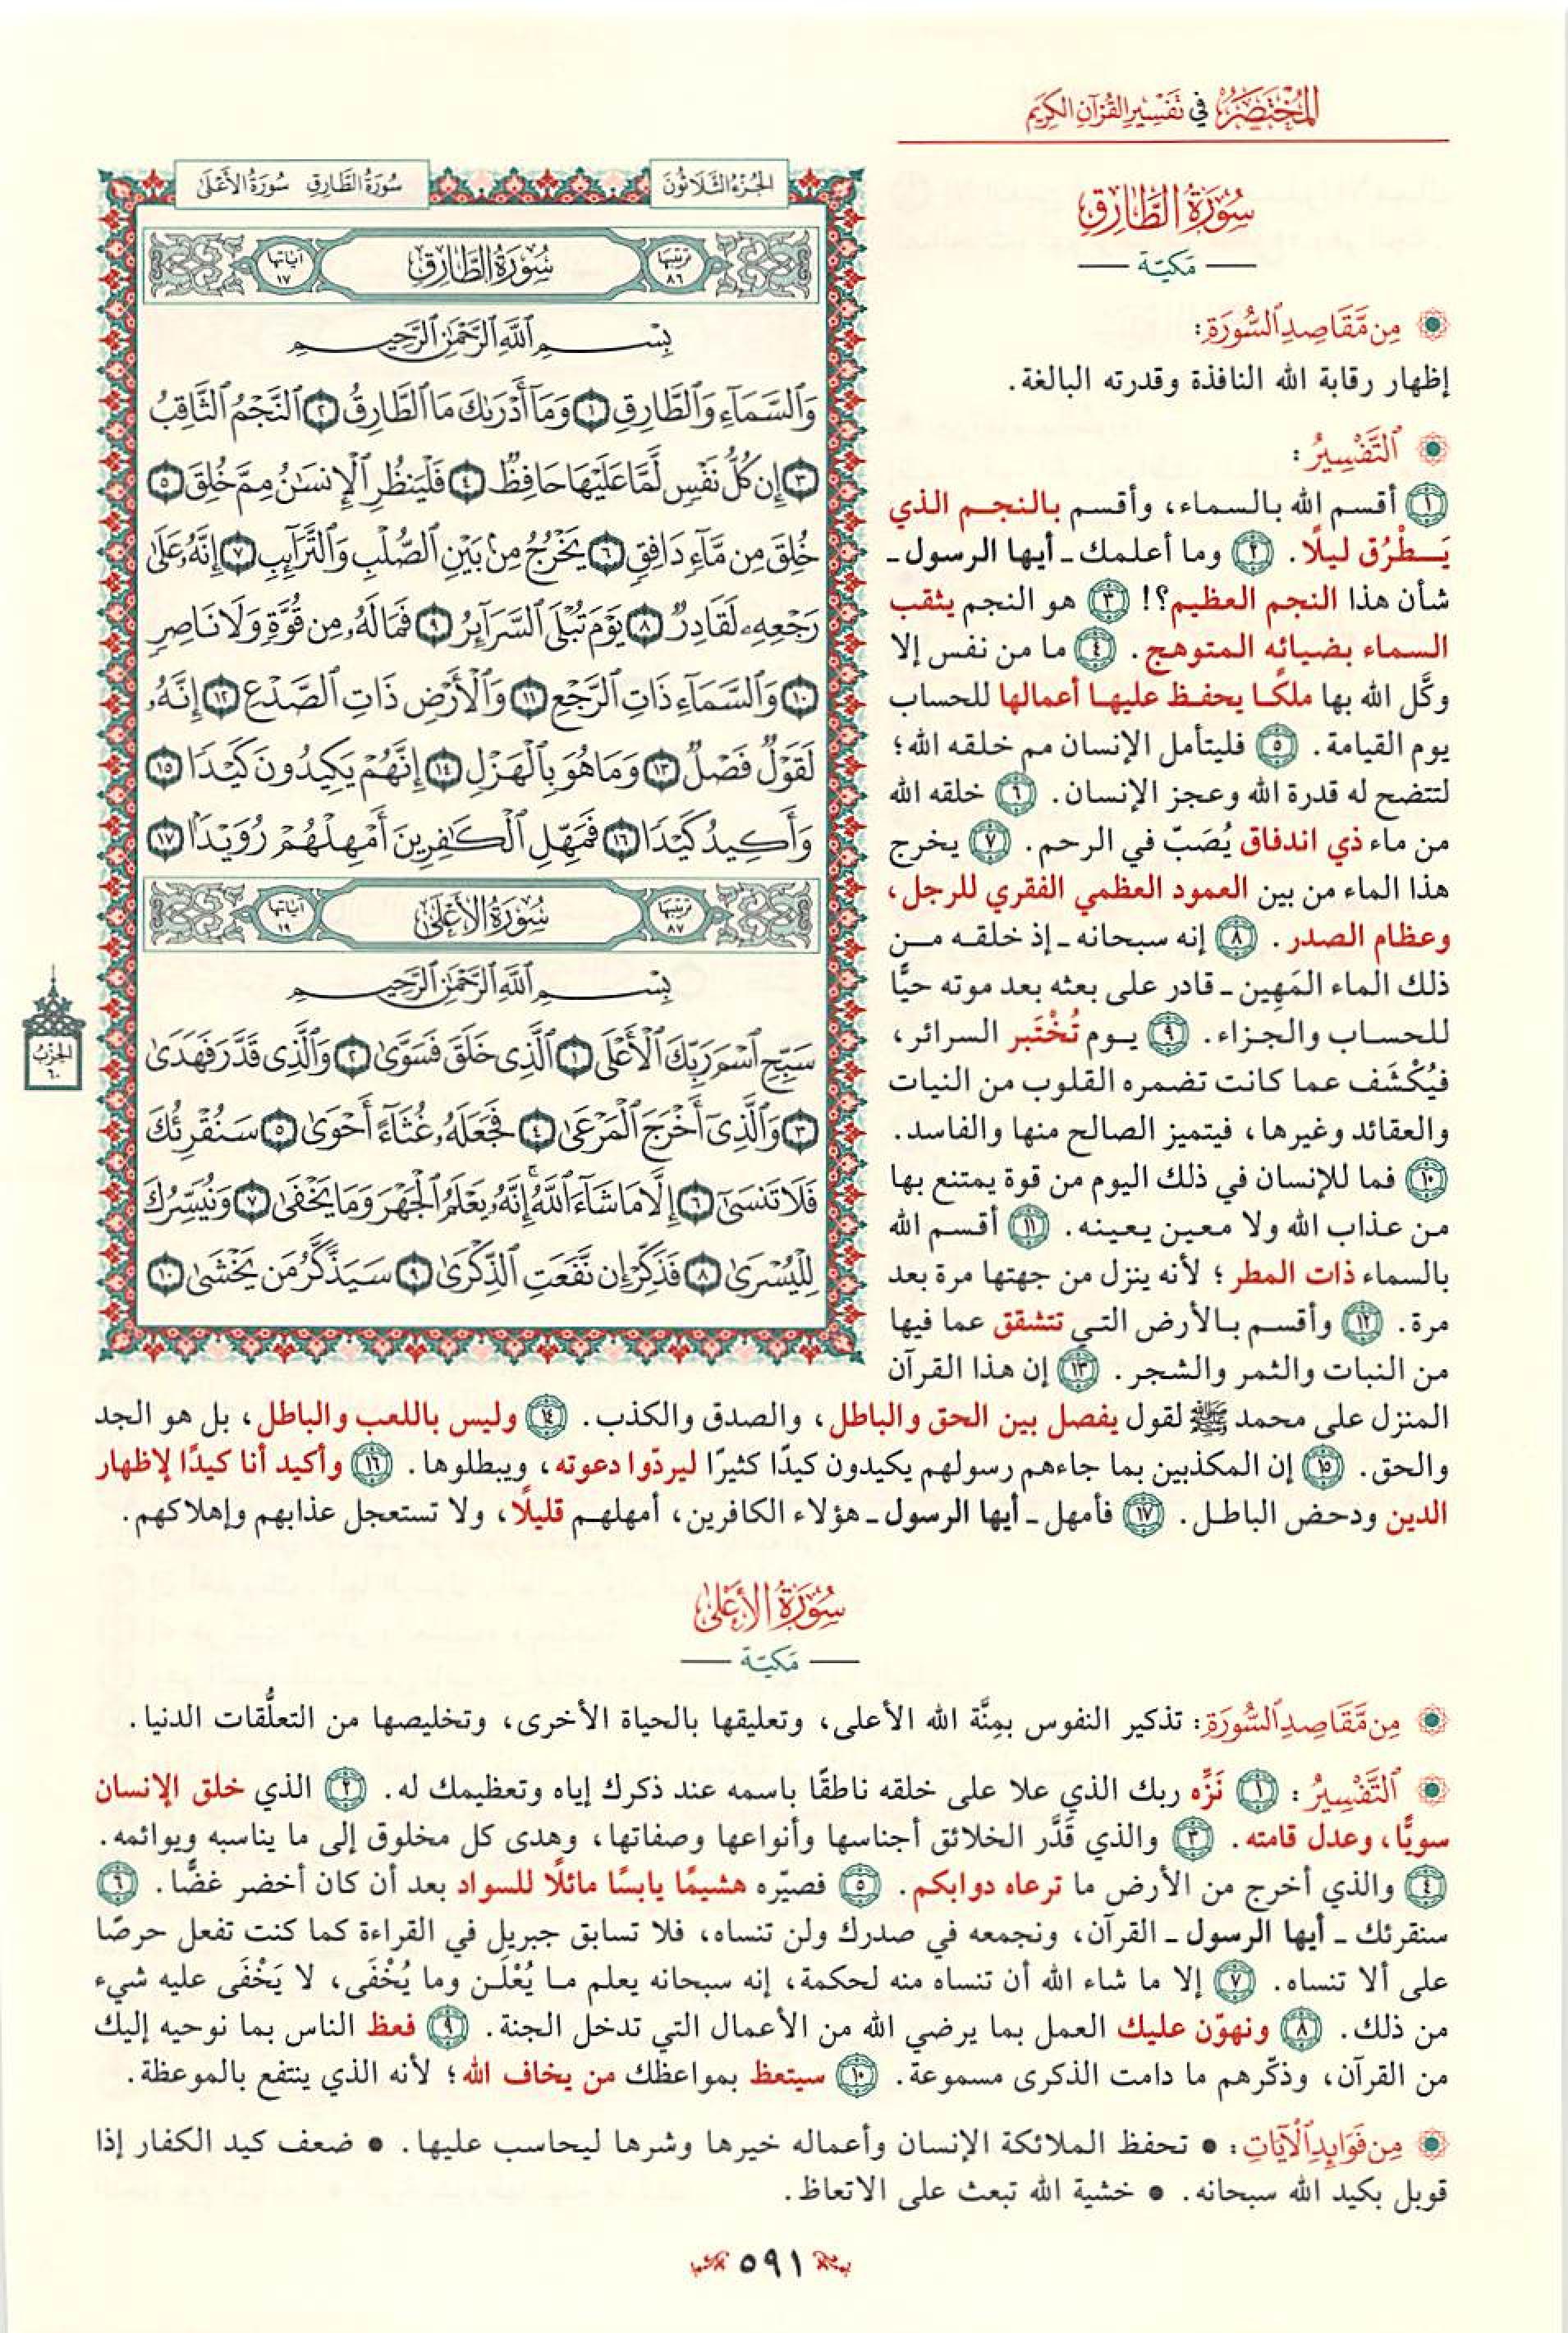 المُخْتَصَرُ في تَفْسِيرِ القُرْآنِ الكَرِيمِ
سُورَةُ الطَّارِقِ
مَكيّة
مِن مَّقَاصِدِ ٱلسُّورَةِ:
إظهار رقابة الله النافذة وقدرته البالغة.
ٱلتَّفْسِيرُ:
١ أقسم الله بالسماء، وأقسم بالنجم الذي
يَطْرُق ليلًا. ٢ وما أعلمك ـ أيها الرسول ـ
شأن هذا النجم العظيم؟! ٣ هو النجم يثقب
السماء بضيائه المتوهج. ٤ ما من نفس إلا
وكَّل الله بها ملكًا يحفظ عليها أعمالها للحساب
يوم القيامة. ٥ فليتأمل الإنسان مم خلقه الله؛
لتتضح له قدرة الله وعجز الإنسان. ٦ خلقه الله
من ماء ذي اندفاق يُصَبّ في الرحم. ٧ يخرج
هذا الماء من بين العمود العظمي الفقري للرجل،
وعظام الصدر. ٨ إنه سبحانه ـ إذ خلقه من
ذلك الماء المَهِين ـ قادر على بعثه بعد موته حيًّا
للحساب والجزاء. ٩ يوم تُخْتَبر السرائر،
فيُكْشَف عما كانت تضمره القلوب من النيات
والعقائد وغيرها، فيتميز الصالح منها والفاسد.
١٠ فما للإنسان في ذلك اليوم من قوة يمتنع بها
من عذاب الله ولا معين يعينه. ١١ أقسم الله
بالسماء ذات المطر؛ لأنه ينزل من جهتها مرة بعد
مرة. ١٢ وأقسم بالأرض التي تتشقق عما فيها
من النبات والثمر والشجر. ١٣ إن هذا القرآن
الجُزءُ الثَّلَاثُونَ
سُورَةُ الطَّارِقِ سُورَةُ الأَعْلَىٰ
ترتيبها ٨٦ سُورَةُ الطَّارِقِ آياتها ١٧
بِسْمِ ٱللَّهِ ٱلرَّحْمَٰنِ ٱلرَّحِيمِ
وَٱلسَّمَآءِ وَٱلطَّارِقِ ١ وَمَآ أَدْرَىٰكَ مَا ٱلطَّارِقُ ٢ ٱلنَّجْمُ ٱلثَّاقِبُ
٣ إِن كُلُّ نَفْسٍ لَّمَّا عَلَيْهَا حَافِظٌ ٤ فَلْيَنظُرِ ٱلْإِنسَٰنُ مِمَّ خُلِقَ ٥
خُلِقَ مِن مَّآءٍ دَافِقٍ ٦ يَخْرُجُ مِنۢ بَيْنِ ٱلصُّلْبِ وَٱلتَّرَآئِبِ ٧ إِنَّهُۥ عَلَىٰ
رَجْعِهِۦ لَقَادِرٌ ٨ يَوْمَ تُبْلَى ٱلسَّرَآئِرُ ٩ فَمَا لَهُۥ مِن قُوَّةٍ وَلَا نَاصِرٍ
١٠ وَٱلسَّمَآءِ ذَاتِ ٱلرَّجْعِ ١١ وَٱلْأَرْضِ ذَاتِ ٱلصَّدْعِ ١٢ إِنَّهُۥ
لَقَوْلٌ فَصْلٌ ١٣ وَمَا هُوَ بِٱلْهَزْلِ ١٤ إِنَّهُمْ يَكِيدُونَ كَيْدًا ١٥
وَأَكِيدُ كَيْدًا ١٦ فَمَهِّلِ ٱلْكَٰفِرِينَ أَمْهِلْهُمْ رُوَيْدًۢا ١٧
ترتيبها ٨٧ سُورَةُ الأَعْلَىٰ آياتها ١٩
بِسْمِ ٱللَّهِ ٱلرَّحْمَٰنِ ٱلرَّحِيمِ
سَبِّحِ ٱسْمَ رَبِّكَ ٱلْأَعْلَى ١ ٱلَّذِى خَلَقَ فَسَوَّىٰ ٢ وَٱلَّذِى قَدَّرَ فَهَدَىٰ
٣ وَٱلَّذِىٓ أَخْرَجَ ٱلْمَرْعَىٰ ٤ فَجَعَلَهُۥ غُثَآءً أَحْوَىٰ ٥ سَنُقْرِئُكَ
فَلَا تَنسَىٰٓ ٦ إِلَّا مَا شَآءَ ٱللَّهُ إِنَّهُۥ يَعْلَمُ ٱلْجَهْرَ وَمَا يَخْفَىٰ ٧ وَنُيَسِّرُكَ
لِلْيُسْرَىٰ ٨ فَذَكِّرْ إِن نَّفَعَتِ ٱلذِّكْرَىٰ ٩ سَيَذَّكَّرُ مَن يَخْشَىٰ ١٠
الحِزْبُ
٦٠
المنزل على محمد ﷺ لقول يفصل بين الحق والباطل، والصدق والكذب. ١٤ وليس باللعب والباطل، بل هو الجد
والحق. ١٥ إن المكذبين بما جاءهم رسولهم يكيدون كيدًا كثيرًا ليردّوا دعوته، ويبطلوها. ١٦ وأكيد أنا كيدًا لإظهار
الدين ودحض الباطل. ١٧ فأمهل ـ أيها الرسول ـ هؤلاء الكافرين، أمهلهم قليلًا، ولا تستعجل عذابهم وإهلاكهم.
سُورَةُ الأَعْلَىٰ
مَكيّة
مِن مَّقَاصِدِ ٱلسُّورَةِ: تذكير النفوس بمِنَّة الله الأعلى، وتعليقها بالحياة الأخرى، وتخليصها من التعلُّقات الدنيا.
ٱلتَّفْسِيرُ: ١ نَزِّه ربك الذي علا على خلقه ناطقًا باسمه عند ذكرك إياه وتعظيمك له. ٢ الذي خلق الإنسان
سويًّا، وعدل قامته. ٣ والذي قَدَّر الخلائق أجناسها وأنواعها وصفاتها، وهدى كل مخلوق إلى ما يناسبه ويوائمه.
٤ والذي أخرج من الأرض ما ترعاه دوابكم. ٥ فصيّره هشيمًا يابسًا مائلًا للسواد بعد أن كان أخضر غضًّا. ٦
سنقرئك ـ أيها الرسول ـ القرآن، ونجمعه في صدرك ولن تنساه، فلا تسابق جبريل في القراءة كما كنت تفعل حرصًا
على ألا تنساه. ٧ إلا ما شاء الله أن تنساه منه لحكمة، إنه سبحانه يعلم ما يُعْلَن وما يُخْفَى، لا يَخْفَى عليه شيء
من ذلك. ٨ ونهوّن عليك العمل بما يرضي الله من الأعمال التي تدخل الجنة. ٩ فعظ الناس بما نوحيه إليك
من القرآن، وذكّرهم ما دامت الذكرى مسموعة. ١٠ سيتعظ بمواعظك من يخاف الله؛ لأنه الذي ينتفع بالموعظة.
مِن فَوَائِدِ ٱلْآيَاتِ: • تحفظ الملائكة الإنسان وأعماله خيرها وشرها ليحاسب عليها. • ضعف كيد الكفار إذا
قوبل بكيد الله سبحانه. • خشية الله تبعث على الاتعاظ.
٥٩١